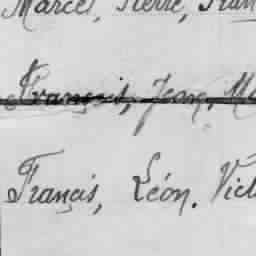 Marcel, Pierre, Fran
François, Jean, Ma
Francis, Léon. Vict